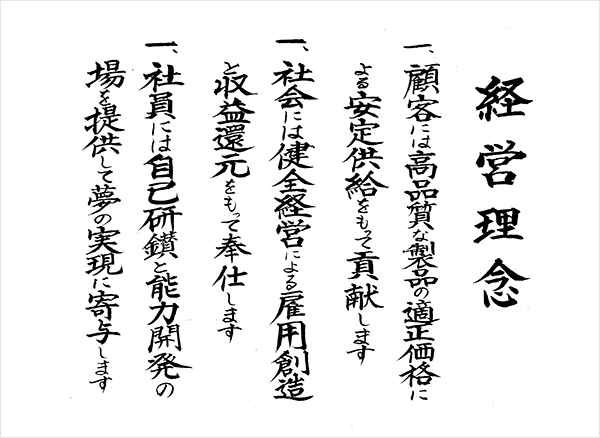 経営理念
一、顧客には高品質な製品の適正価格に
よる安定供給をもって貢献します
一、社会には健全経営による雇用創造
と収益還元をもって奉仕します
一、社員には自己研鑚と能力開発の
場を提供して夢の実現に寄与します